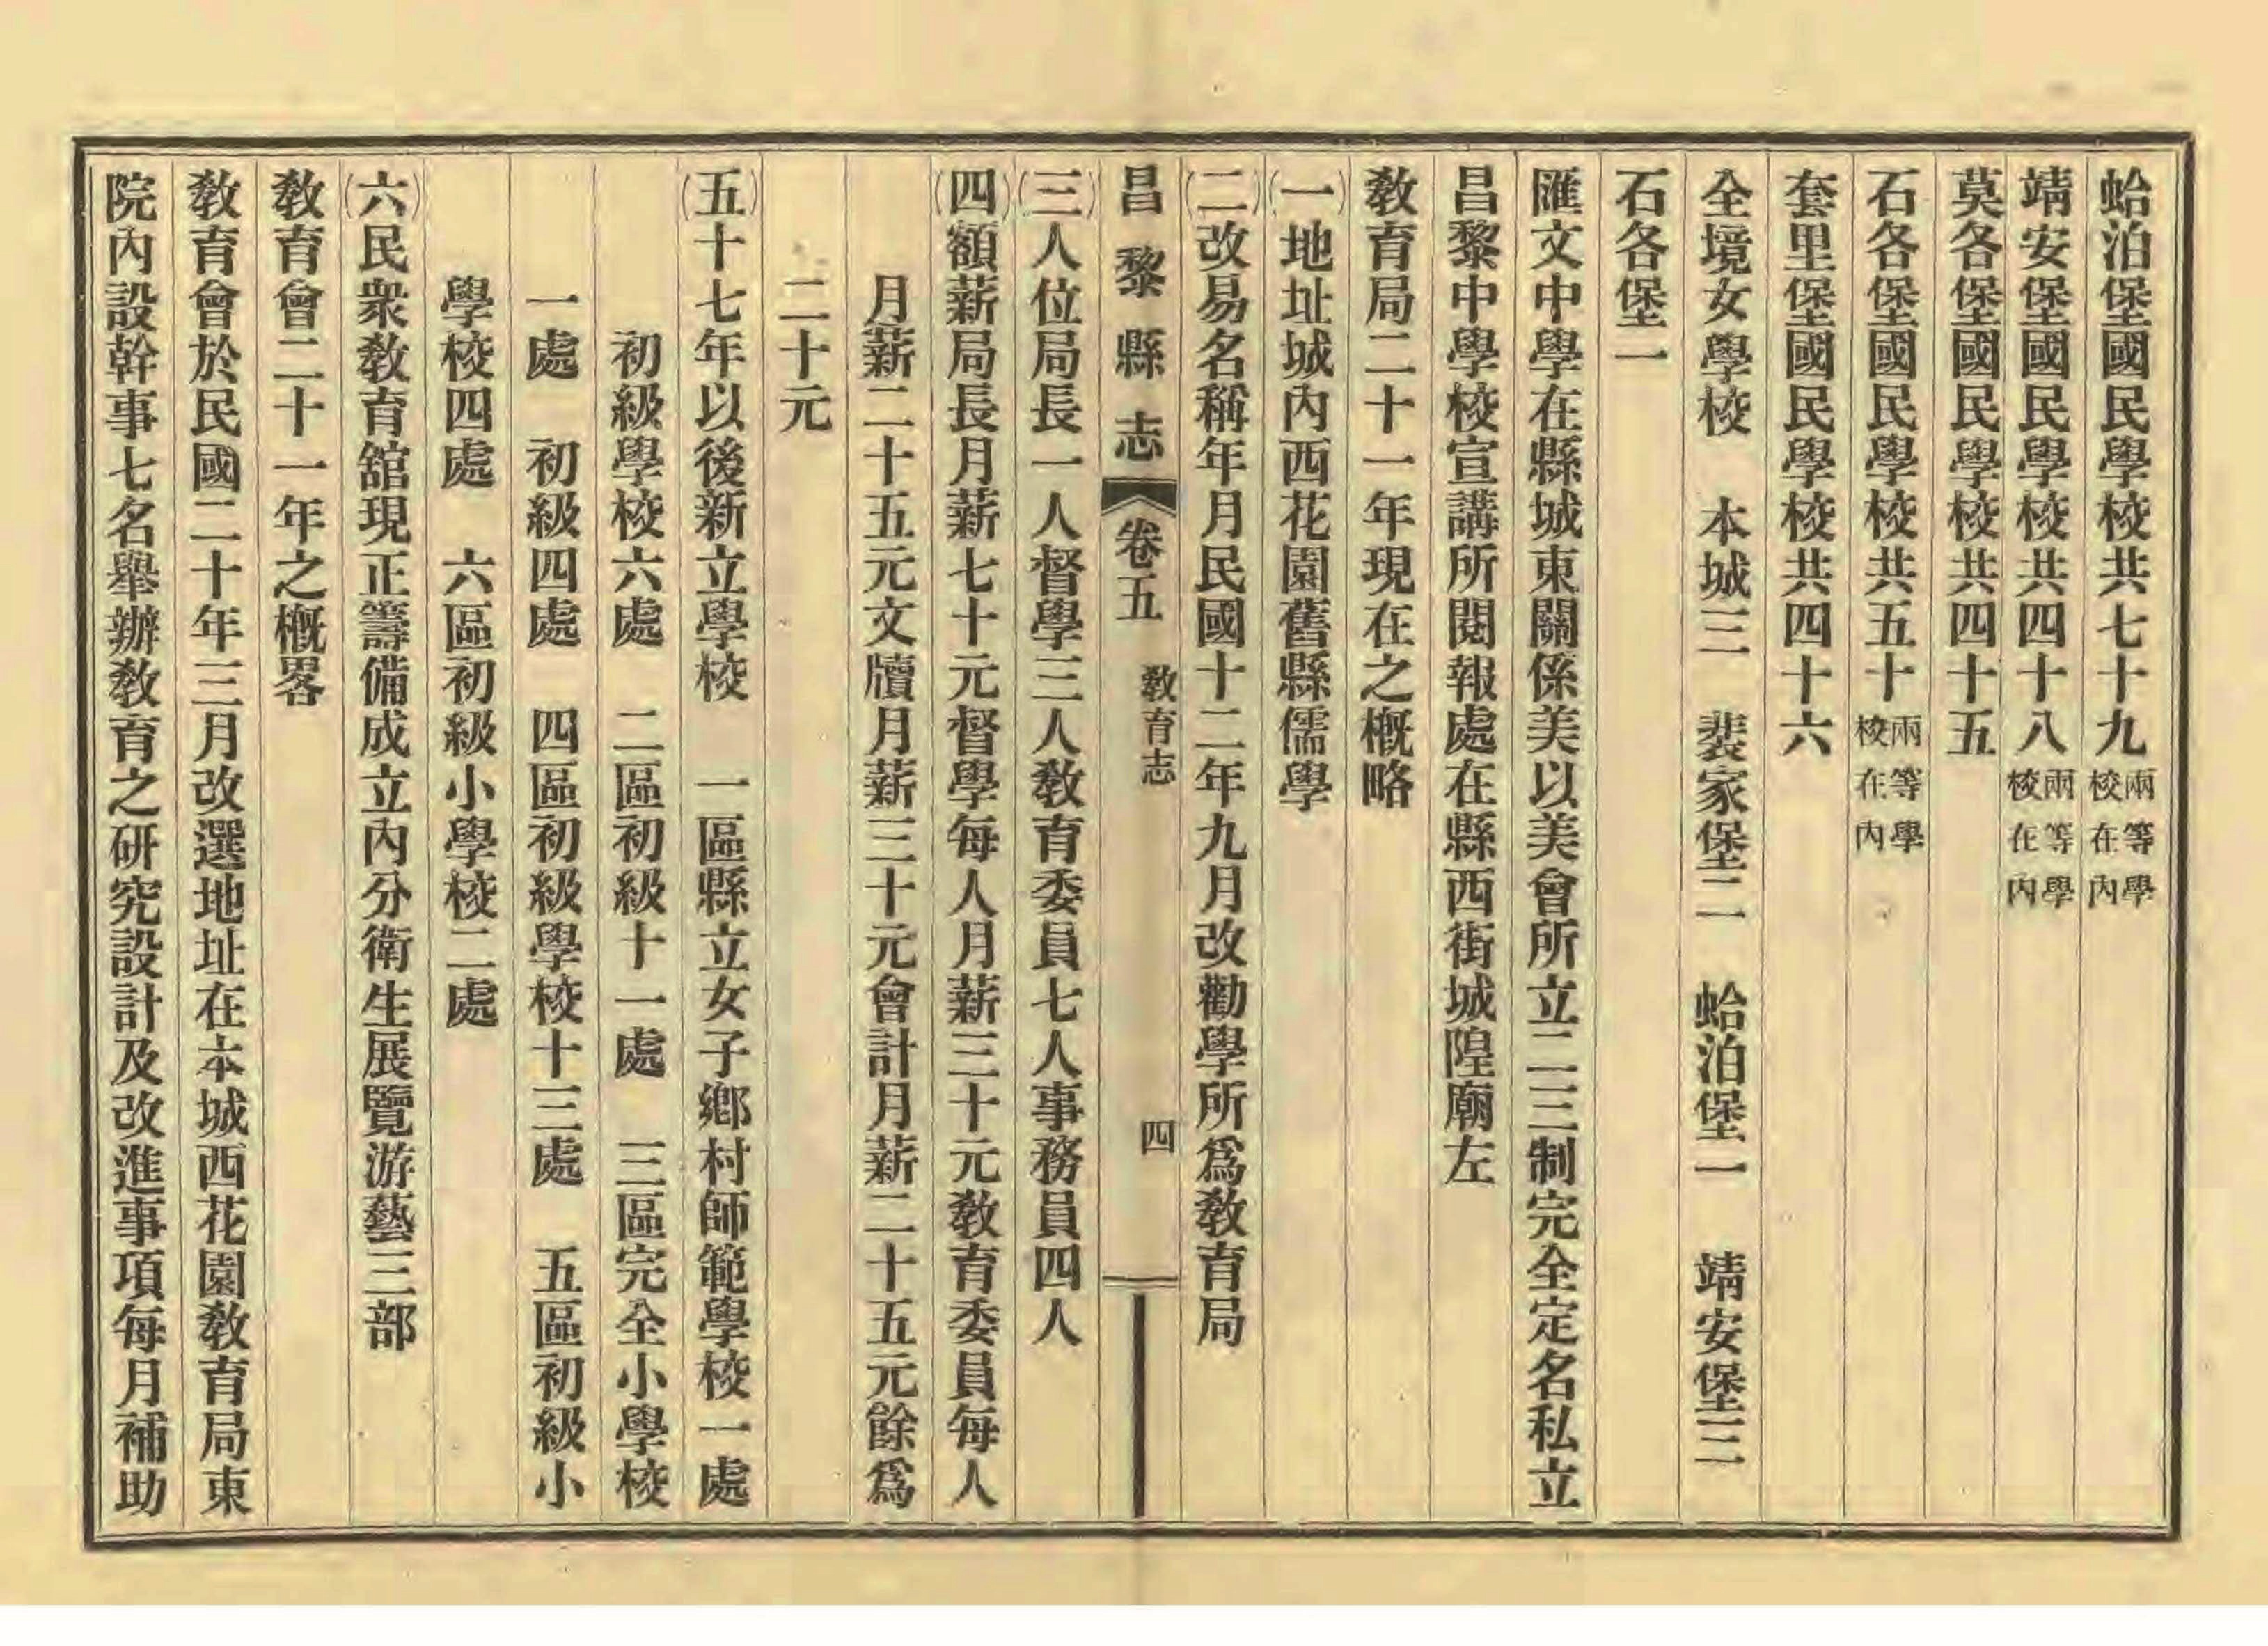 蛤泊堡國民學校共七十九兩等學校在內
靖安堡國民學校共四十八兩等學校在內
莫各堡國民學校共四十五
石各堡國民學校共五十兩等學校在內
套里堡國民學校共四十六
全境女學校　本城三　裴家堡二　蛤泊堡一　靖安堡三
石各堡一
匯文中學在縣城東關係美以美會所立二三制完全定名私立
昌黎中學校宣講所閱報處在縣西街城隍廟左
教育局二十一年現在之概略
(一)地址城內西花園舊縣儒學
(二)改易名稱年月民國十二年九月改勸學所爲教育局
昌黎縣志　卷五　教育志　四
(三)人位局長一人督學三人教育委員七人事務員四人
(四)額薪局長月薪七十元督學每人月薪三十元教育委員每人
月薪二十五元文牘月薪三十元會計月薪二十五元餘爲
二十元
(五)十七年以後新立學校　一區縣立女子鄉村師範學校一處
初級學校六處　二區初級十一處　三區完全小學校
一處　初級四處　四區初級學校十三處　五區初級小
學校四處　六區初級小學校二處
(六)民衆教育舘現正籌備成立內分衛生展覽游藝三部
教育會二十一年之概畧
教育會於民國二十年三月改選地址在本城西花園教育局東
院內設幹事七名舉辦教育之研究設計及改進事項每月補助